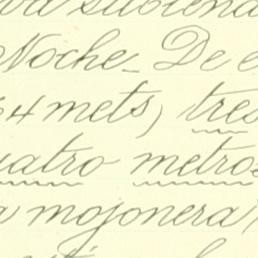 va subiend
Noche_ De e
64 mets, tres
uatro metros
a mojonera